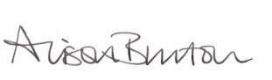 Alison Burton